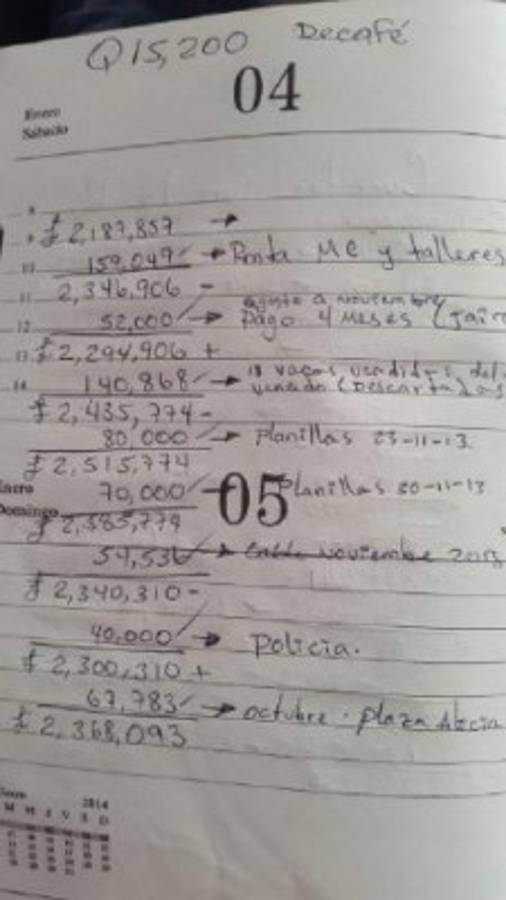 Q15,200 Decafé
04
Enero
Sábado
9 £ 2,187,857 →
10 159,049 → Renta MC y talleres
11 2,346,906 -
agosto a noviembre
12 52,000 → Pago 4 meses (Jairo
13 £ 2,294,906 +
14 140,868 → 18 vacas vendidas del
venado (Descartadas
£ 2,435,774 -
80,000 → Planillas 23-11-13
£ 2,515,774
70,000 → Planillas 30-11-13
05
Enero
Domingo
£ 2,385,774
54,536 → Cable Noviembre 2013
£ 2,340,310 -
40,000 → Policia.
£ 2,300,310 +
67,783 → octubre. plaza
£ 2,368,093
2014
M M J V S D